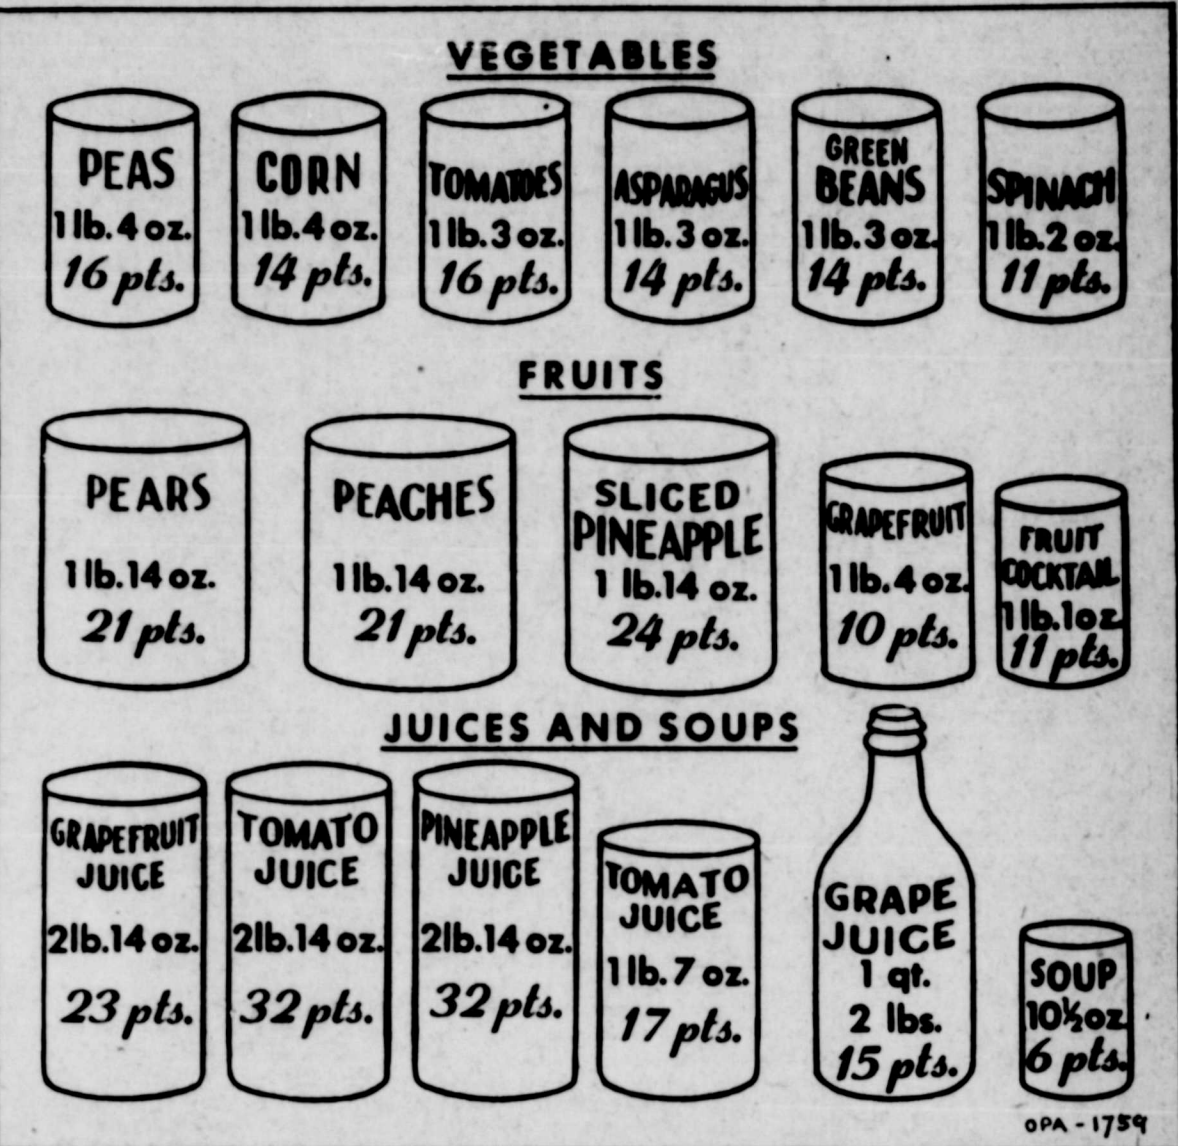 VEGETABLES
PEAS
1 lb. 4 oz.
16 pts.
CORN
1 lb. 4 oz.
14 pts.
TOMATOES
1 lb. 3 oz.
16 pts.
ASPARAGUS
1 lb. 3 oz.
14 pts.
GREEN
BEANS
1 lb. 3 oz.
14 pts.
SPINACH
1 lb. 2 oz.
11 pts.
FRUITS
PEARS
1 lb. 14 oz.
21 pts.
PEACHES
1 lb. 14 oz.
21 pts.
SLICED
PINEAPPLE
1 lb. 14 oz.
24 pts.
GRAPEFRUIT
1 lb. 4 oz.
10 pts.
FRUIT
COCKTAIL
1 lb. 1 oz.
11 pts.
JUICES AND SOUPS
GRAPEFRUIT
JUICE
2 lb. 14 oz.
23 pts.
TOMATO
JUICE
2 lb. 14 oz.
32 pts.
PINEAPPLE
JUICE
2 lb. 14 oz.
32 pts.
TOMATO
JUICE
1 lb. 7 oz.
17 pts.
GRAPE
JUICE
1 qt.
2 lbs.
15 pts.
SOUP
10½ oz.
6 pts.
OPA - 1759